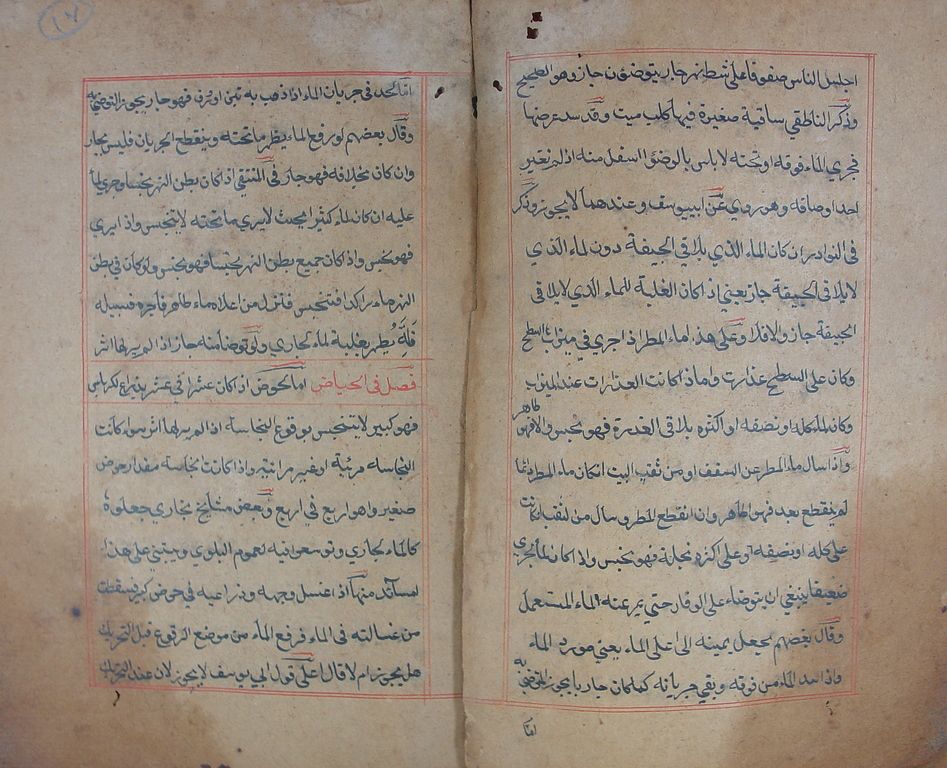 اجلس الناس صفوفا على شط نهر جار يتوضؤن جاز وهو الصحيح
وذكر الناطقي ساقية صغيرة فيها كلب ميت وقد سد عرضها
فجرى الماء فوقه او تحته لا باس بالوضؤ اسفل منه اذ لم تغير
احد اوصافه وهو روي عن ابي يوسف وعندهما لا يجوز وذكر
في النوادر ان كان الماء الذي يلاقي الجيفة دون الماء الذي
لا يلاقي الجيفة جاز يعني اذ كان الغلبة للماء الذي لا يلاقي
الجيفة جاز والا فلا وعلى هذا ماء المطر اذ اجرى في ميزاب السطح
وكان على السطح عذارت واما ذا كانت العذارات عند الميزاب
وكان الماء كله او نصفه او اكثره يلاقي العذرة فهو نجس والا فهو
طاهر
واذا سال ماء المطر عن السقف او من ثقب البيت ان كان ماء المطر دائما
لم ينقطع بعد فهو طاهر وان انقطع المطر و سال من الثقب ان كانت
على كله او نصفه او على اكثره نجاسة فهو نجس واذا كان الماء يجري
ضعيفا ينبغي ان يتوضاء على الوقار حتى يمر عنه الماء المستعمل
وقال بعضهم يجعل يمينه الى اعلى الماء يعني مورد الماء
واذا سد الماء من فوقه وبقي جريانه كما كان جاريا يجوز التوضئ به
اما
١٧
اما الحد في جريان الماء اذا ذهب به تبن او ورق فهو جار يجوز التوضئ به
وقال بعضهم لو رفع الماء يظهر ما تحته وينقطع الجريان فليس بجار
وان كان بخلافه فهو جار في المنتقى اذ كان بطن النهر نجسا وجرى الماء
عليه ان كان الماء كثيرا بحيث لا يرى ما تحته لا يتنجس واذ ايرى
فهو نجس واذ كان جميع بطن النهر نجسا فهو نجس ولو كان في بطن
النهر ماء راكدا فتنجس فنزل من اعلاه ماء طاهر فاجره فسبيله
فانه يطهر بغلبة الماء الجاري ولو توضأ منه جاز اذ الم ير بها اثر
فصل في الحياض اما الحوض اذ كان عشرا في عشر بذراع الكرباس
فهو كبير لا يتنجس بوقوع النجاسة اذ الم ير لها اثر سواء كانت
النجاسة مرئية او غير مرئية واذ كانت النجاسة مقدار حوض
صغير واهو اربع في اربع وبعض مشايخ بخاري جعلوه
كالماء الجاري وتوسعوا فيه لعموم البلوي ويبتنى على هذا
مسائل منها اذ اغسل وجهه وذراعيه في حوض كبير فسقطت
من غسالته في الماء فرفع الماء من موضع الوقوع قبل التحريك
هل يجوز ام لا قالا على قول ابي يوسف لا يجوز لان عنده التحريك